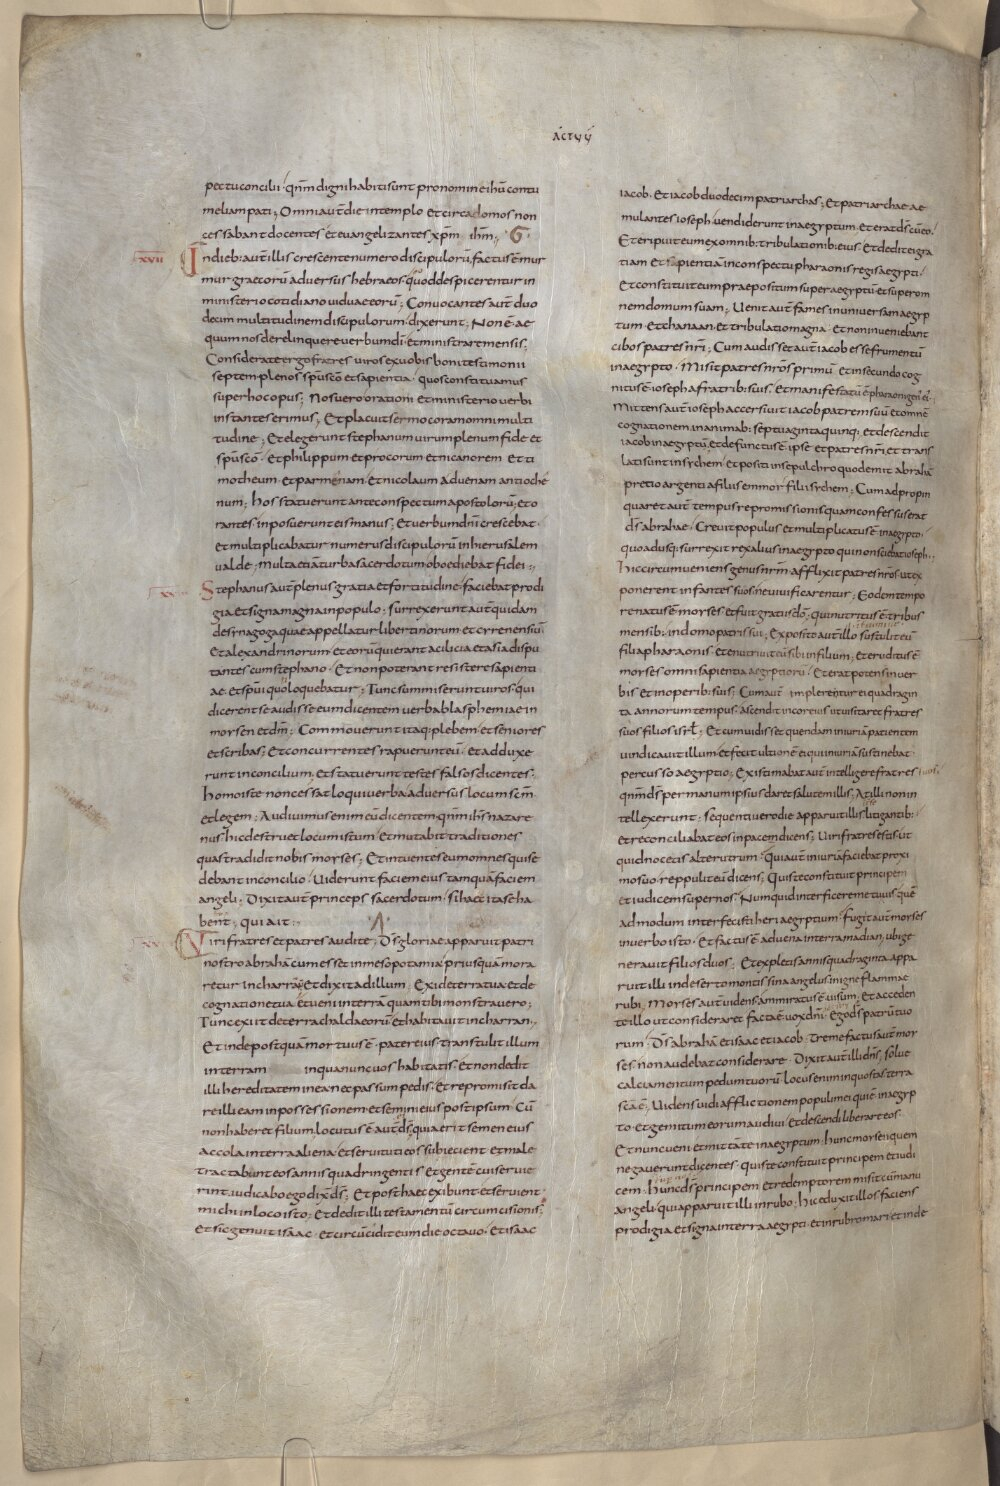 ACTUU
pectu concilii · qnm digni habiti sunt pro nomine ihu contu
meliam pati ; Omni aut die in templo et circa domos non
cessabant docentes et evangelizantes xpm ihm ;
XVII In dieb: aut illis crescente numero discipuloru, factus e mur
mur graecoru adversus hebraeos · quod despicerentur in
ministerio cotidiano viduae eoru ; Convocantes aut duo
decim multitudinem discipulorum dixerunt ; Non e ae
quum nos derelinquere verbum di et ministrare mensis ;
Considerate ergo fratres viros ex vobis boni testimonii
septem plenos spu sco et sapientia · quos constituamus
super hoc opus ; Nos vero orationi et ministerio verbi
instantes erimus ; Et placuit sermo coram omni multi
tudine ; Et elegerunt stephanum virum plenum fide et
spu sco · et philippum et procorum et nicanorem et ti
motheum · et parmenam et nicolaum advenam antioche
num ; hos statuerunt ante conspectum apostoloru ; et o
rantes inposuerunt eis manus ; Et verbum dni crescebat ·
et multiplicabatur numerus discipuloru in hierusalem
valde · multa etia turba sacerdotum oboediebat fidei ;
Stephanus aut plenus gratia et fortitudine faciebat prodi
gia et signa magna in populo ; surrexerunt aut quidam
de synagoga quae appellatur libertinorum et cyrenensiu
et alexandrinorum · et eoru qui erant a cilicia et asia dispu
tantes cum stephano · Et non poterant resistere sapienti
ae · et spui quo loquebatur ; Tunc summiserunt viros · qui
dicerent se audisse eum dicentem verba blasphemiae in
moysen et dm ; Commoverunt itaq: plebem et seniores
et scribas ; Et concurrentes rapuerunt eu · et adduxe
runt in concilium · et statuerunt testes falsos dicentes ;
homo iste non cessat loqui verba adversus locum scm
et legem ; Audivimus enim eu dicentem qnm ihs nazare
nus · hic destruet locum istum · et mutabit traditiones
quas tradidit nobis moyses ; Et intuentes eum omnes qui se
debant in concilio · Viderunt faciem eius tamqua faciem
angeli · Dixit aut princeps sacerdotum · si haec ita se ha
bent ; qui ait ;
Viri fratres et patres audite ; Ds gloriae apparuit patri
nostro abraha cum esset in mesopotamia priusqua mora
retur in charra · Et dixit ad illum · Exi de terra tua et de
cognatione tua · et veni in terra quam tibi monstravero ;
Tunc exiit de terra chaldaeoru et habitavit in charran ;
Et inde postqua mortuus e pater eius · transtulit illum
in terram in qua nunc vos habitatis · Et non dedit
illi hereditatem in ea nec passum pedis · Et repromisit da
re illi eam in possessionem et semini eius post ipsum · Cu
non haberet filium, locutus e aut ds, quia erit semen eius
accola in terra aliena · et servituti eos subicient et male
tractabunt eos annis quadringentis · Et gente cui servie
rint · iudicabo ego dix ds ; Et post haec exibunt et servient ·
michi in loco isto ; Et dedit illi testamentu circumcisionis ;
Et sic genuit isaac · et circucidit eum die octavo · Et isaac
iacob · Et iacob duodecim patriarchas ; Et patriarchae ae
mulantes ioseph vendiderunt in aegyptum · et erat ds cu eo ·
Et eripuit eum ex omnib: tribulationib: eius · Et dedit ei gra
tiam et sapientia in conspectu pharaonis regis aegypti ·
Et constituit eum praepositum super aegyptu et super om
nem domum suam ; Venit aut fames in universam aegyp
tum · et chanaan · et tribulatio magna · et non inveniebant
cibos patres nri ; Cum audisset aut iacob esse frumentu
in aegypto · Misit patres nros primu et in secundo cog
nitus e ioseph a fratrib: suis · Et manifestatu e pharaoni gen ei ;
Mittens aut ioseph accersivit iacob patrem suu et omne
cognationem in animab: septuaginta quinq; et descendit
iacob in aegyptu, et defunctus e ipse et patres nri et trans
lati sunt in sychem · et positi in sepulchro quod emit abraha
pretio argenti a filiis emmor filii sychem ; Cum adpropin
quaret aut tempus repromissionis quam confessus erat
ds abrahae · Crevit populus et multiplicatus e in aegypto
quoadusq: surrexit rex alius in aegypto qui non sciebat ioseph ;
hic circumveniens genus nrm afflixit patres nros · ut ex
ponerent infantes suos ne vivificarentur ; Eodem tempo
re natus e moyses et fuit gratus do, Qui nutritus e tribus
mensib: in domo patris sui ; Exposito aut illo sustulit eu
filia pharaonis · et enutrivit eu sibi in filium ; et eruditus e
moyses omni sapientia aegyptioru · Et erat potens in ver
bis et in operib: suis ; Cum aut impleretur ei quadragin
ta annorum tempus · ascendit in cor eius ut visitaret fratres
suos filios isrl ; Et cum vidisset quendam iniuria patientem
vindicavit illum · et fecit ultione ei qui iniuria sustinebat ·
percusso aegyptio ; Existimabat aut intellegere fratres
qnm ds per manum ipsius daret salutem illis · At illi non in
tellexerunt ; sequenti vero die apparuit illis litigantib:
et reconciliabat eos in pacem dicens ; Viri fratres estis · ut
quid nocetis alterutrum ; Qui aut iniuria faciebat proxi
mo suo · reppulit eu dicens ; Quis te constituit principem
et iudicem super nos · Numquid interficere me tu vis · que
admodum interfecisti heri aegyptium · fugit aut moyses
in verbo isto · Et factus e advena in terra madian, ubi ge
neravit filios duos · Et expletis annis quadraginta appa
ruit illi in deserto montis sina angelus in igne flammae
rubi · Moyses aut videns ammiratus e visum · et acceden
te illo ut consideraret facta e vox dni · Ego ds patru tuo
rum · Ds abraha et isaac et iacob · Tremefactus aut moy
ses · non audebat considerare · Dixit aut illi dns, solve
calciamentum pedum tuoru · locus enim in quo stas terra
sca e ; Videns vidi afflictionem populi mei qui e in aegyp
to · et gemitum eorum audivi · et descendi liberare eos ·
Et nunc veni et mittam te in aegyptum · hunc moysen quem
negaverunt dicentes · quis te constituit principem et iudi
cem · hunc ds principem et redemptorem misit cu manu
angeli · qui apparuit illi in rubo · hic eduxit illos faciens
prodigia et signa in terra aegypti · et in rubro mari · et in de